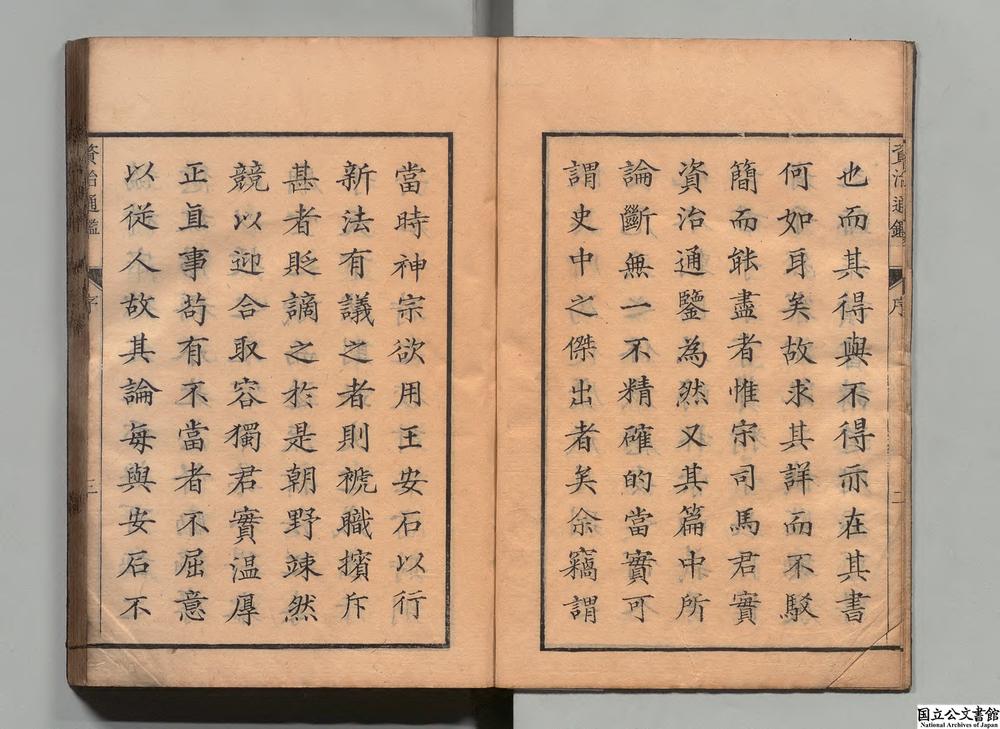 資治通鑑
序
二
也而其得與不得亦在其書
何如耳矣故求其詳而不駁
簡而能盡者惟宋司馬君實
資治通鑒為然又其篇中所
論斷無一不精確的當實可
謂史中之傑出者矣余竊謂
當時神宗欲用王安石以行
新法有議之者則褫職擯斥
甚者貶謫之於是朝野竦然
競以迎合取容獨君實温厚
正直事苟有不當者不屈意
以従人故其論每與安石不
資治通鑑
序
三
国立公文書館
National Archives of Japan